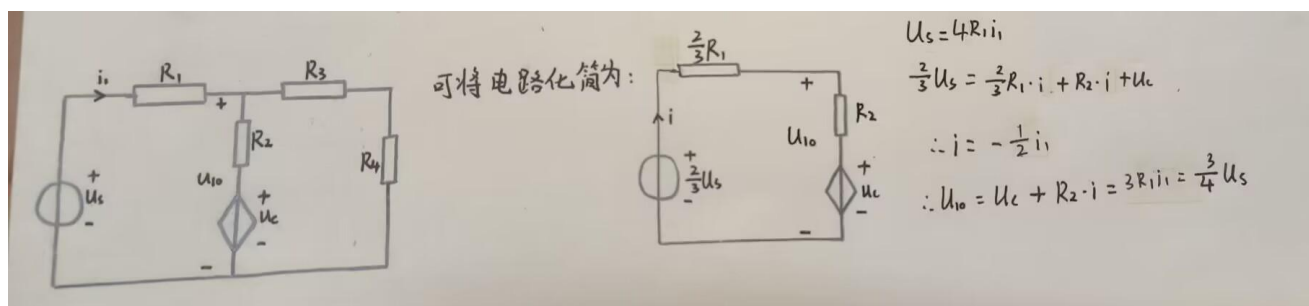 i₁ R₁ R₃
+ R₂ R₄
+ Us - U₁₀ + Uc -
-
可将电路化简为:
2/3 R₁
i + R₂
+ 2/3 Us - U₁₀ + Uc -
-
Us=4R₁i₁
2/3 Us = 2/3 R₁·i + R₂·i + Uc
∴ i = - 1/2 i₁
∴ U₁₀ = Uc + R₂·i = 3R₁i₁ = 3/4 Us